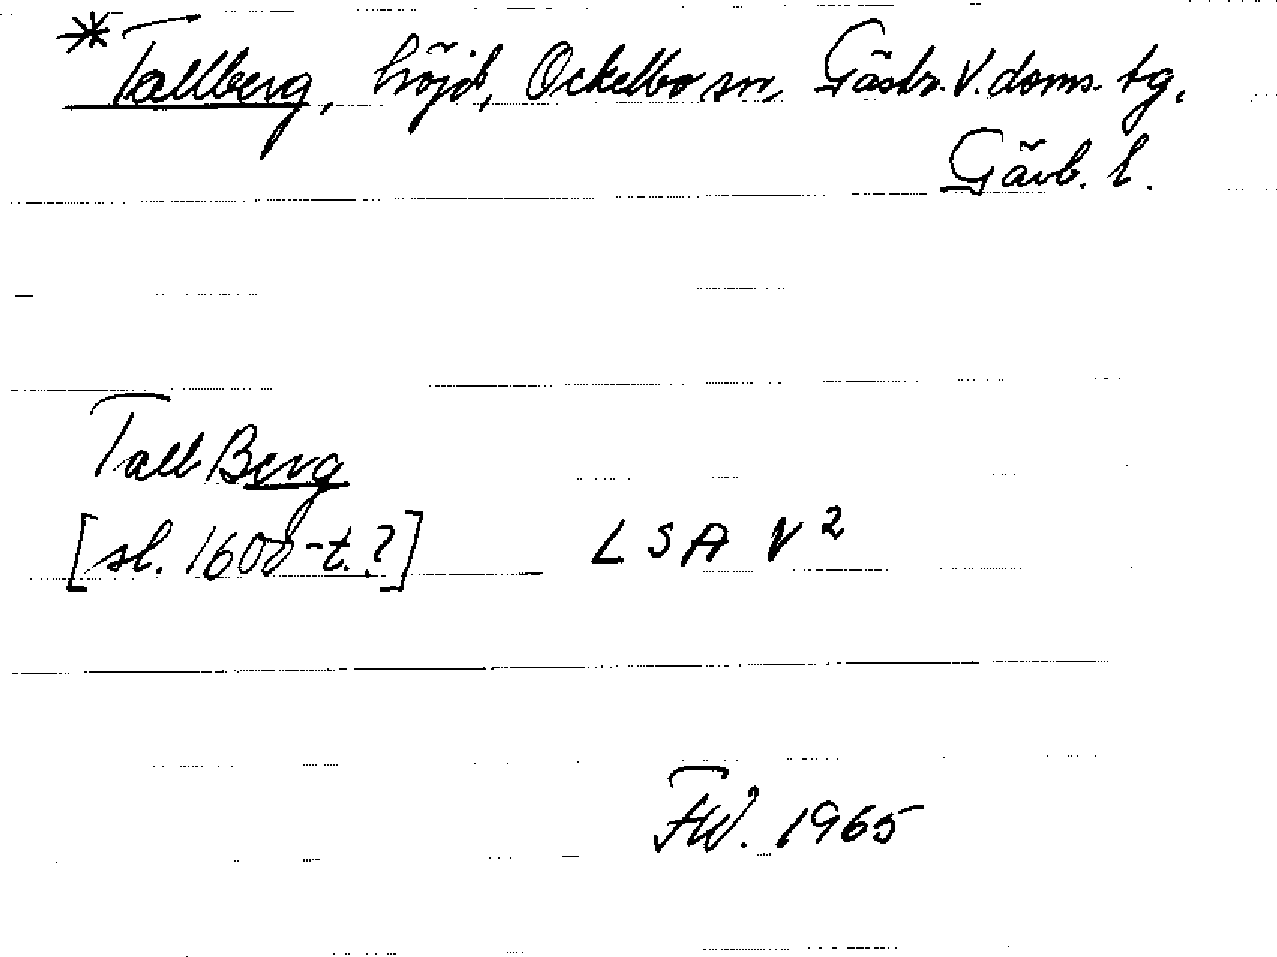 * Tallberg, höjd, Ockelbo sn, Gästr. V. doms. tg.
Gävb. l.
Tall Berg
[sl. 1600-t.?] LSA V 2
FW. 1965